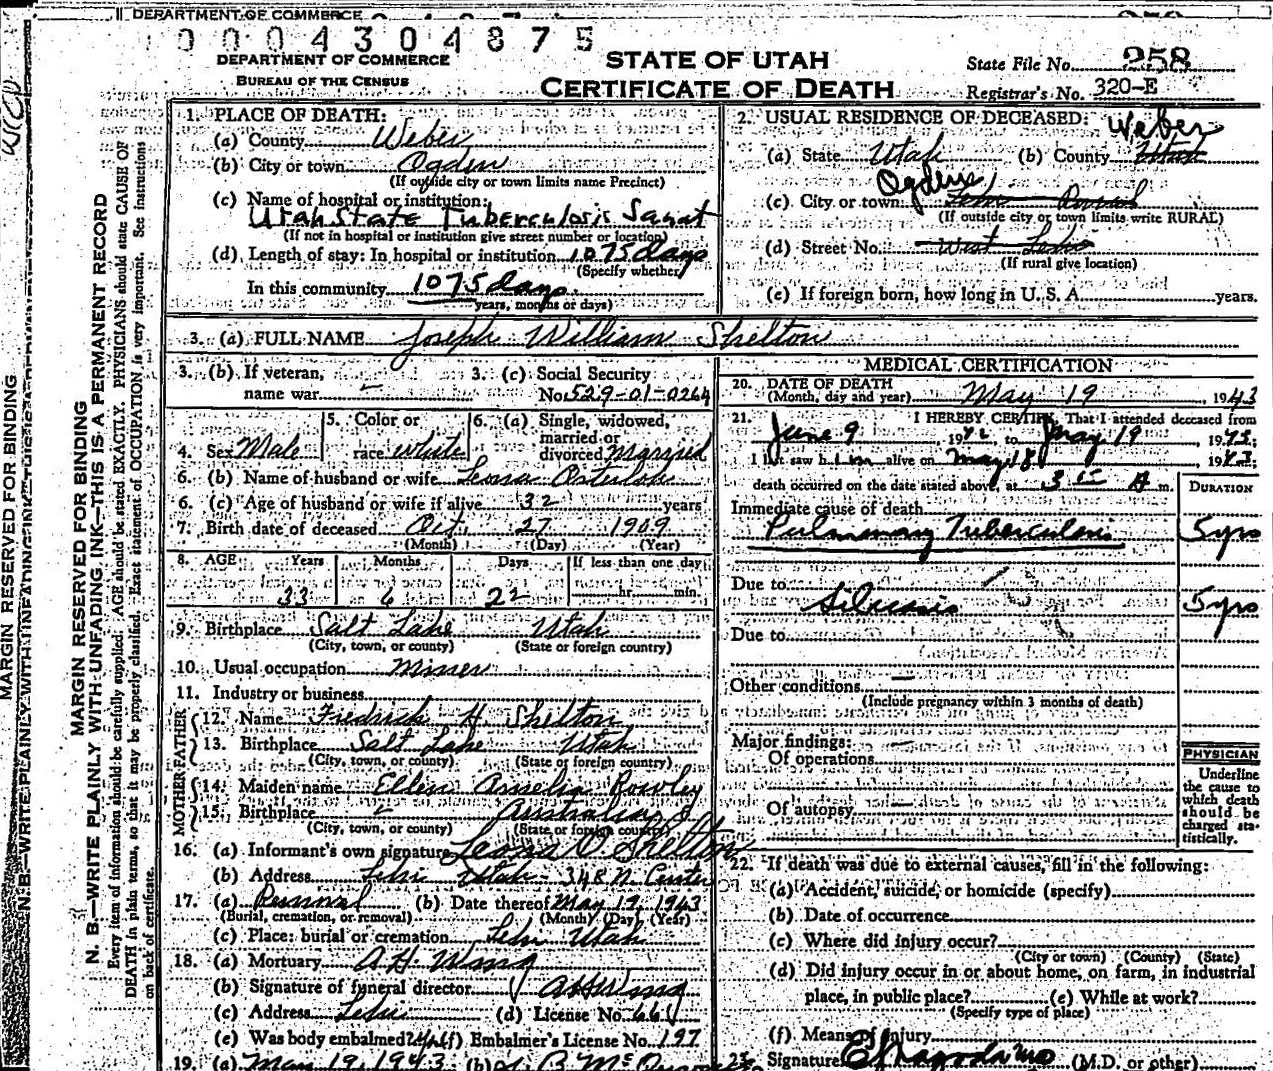 DEPARTMENT OF COMMERCE
0004304875
DEPARTMENT OF COMMERCE
BUREAU OF THE CENSUS
STATE OF UTAH
CERTIFICATE OF DEATH
State File No. 258
Registrar's No. 320-E
MARGIN RESERVED FOR BINDING
N. B.—WRITE PLAINLY WITH UNFADING INK—THIS IS A PERMANENT RECORD
MARGIN RESERVED FOR BINDING
N. B.—WRITE PLAINLY WITH UNFADING INK—THIS IS A PERMANENT RECORD
Every item of information should be carefully supplied. AGE should be stated EXACTLY. PHYSICIANS should state CAUSE OF
DEATH in plain terms, so that it may be properly classified. Exact statement of OCCUPATION is very important. See instructions
on back of certificate.
1. PLACE OF DEATH:
(a) County Weber
(b) City or town Ogden
(If outside city or town limits name Precinct)
(c) Name of hospital or institution:
Utah State Tuberculosis Sanat
(If not in hospital or institution give street number or location)
(d) Length of stay: In hospital or institution 1075 days
(Specify whether
In this community 1075 days
years, months or days)
2. USUAL RESIDENCE OF DECEASED:
(a) State Utah (b) County Utah Weber
Ogden
(c) City or town Lehi Rural
(If outside city or town limits write RURAL)
(d) Street No. West Lehi
(If rural give location)
(e) If foreign born, how long in U. S. A. years.
3. (a) FULL NAME Joseph William Shelton
3. (b) If veteran,
name war -
3. (c) Social Security
No. 529-01-0264
4. Sex Male
5. Color or
race white
6. (a) Single, widowed,
married or
divorced Married
6. (b) Name of husband or wife Leona
6. (c) Age of husband or wife if alive 32 years
7. Birth date of deceased Oct. 27 1909
(Month) (Day) (Year)
8. AGE Years Months Days If less than one day
33 6 22 hr. min.
9. Birthplace Salt Lake Utah
(City, town, or county) (State or foreign country)
10. Usual occupation Miner
11. Industry or business
FATHER
12. Name Fredrick H Shelton
13. Birthplace Salt Lake Utah
(City, town, or county) (State or foreign country)
MOTHER
14. Maiden name Ellen Amelia Rowley
15. Birthplace - Australia
(City, town, or county) (State or foreign country)
16. (a) Informant's own signature Leona O. Shelton
(b) Address Lehi Utah - 348 N. Center
17. (a) Removal (b) Date thereof May 19, 1943
(Burial, cremation, or removal) (Month) (Day) (Year)
(c) Place: burial or cremation Lehi Utah
18. (a) Mortuary A H Wing
(b) Signature of funeral director A H Wing
(c) Address Lehi (d) License No. 661
(e) Was body embalmed? (f) Embalmer's License No. 197
19. (a) May 19, 1943 (b)
MEDICAL CERTIFICATION
20. DATE OF DEATH
(Month, day and year) May 19, 1943
21. I HEREBY CERTIFY, That I attended deceased from
June 9, 1942 to May 19, 1943;
I last saw him alive on May 18, 1943;
death occurred on the date stated above, at 3 15 A m.
DURATION
Immediate cause of death
Pulmonary Tuberculosis 5 yrs
Due to
Silicosis 5 yrs
Due to
Other conditions
(Include pregnancy within 3 months of death)
Major findings:
Of operations
Of autopsy
PHYSICIAN
Underline
the cause to
which death
should be
charged sta-
tistically.
22. If death was due to external causes, fill in the following:
(a) Accident, suicide, or homicide (specify)
(b) Date of occurrence
(c) Where did injury occur?
(City or town) (County) (State)
(d) Did injury occur in or about home, on farm, in industrial
place, in public place? (e) While at work?
(Specify type of place)
(f) Means of injury
23. Signature (M.D. or other)